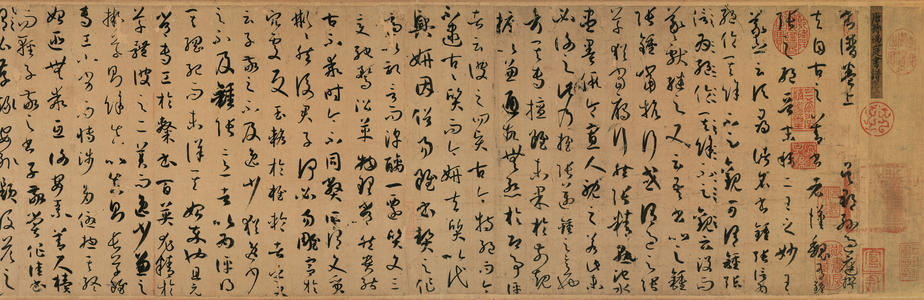 書譜卷上 吳郡孫過庭撰
夫自古之善書者漢魏有鍾
張之絕晉末稱二王之妙王
羲之云頃尋諸名書鍾張信為
絕倫其餘不足觀可謂鍾張
云沒而
羲獻繼之又云吾書比之鍾
張鍾當抗行或謂過之張
草猶當雁行然張精熟池水
盡墨假令寡人耽之若此未
必謝之此乃推張邁鍾之意也
考其專擅雖未果於前規
摭以兼通故無慚於即事評
者云彼之四賢古今特絕而今
不逮古古質而今妍夫質以代
興妍因俗易雖書契之作
適以記言而淳醨一遷質文三
變馳騖沿革物理常然貴能
古不乖時今不同弊所謂文質
彬彬然後君子何必易雕宮於
穴處反玉輅於椎輪者乎又
云子敬之不及逸少猶逸少之
不及鍾張意者以為評得其
綱紀而未詳其始卒也且元
常專工於隸書百英尤精於
草體彼之二美而逸少兼之
擬草則餘真比真則長草雖
專工小劣而博涉多優總其終
始匪無乖互謝安素善尺牘
而輕子敬之書子敬嘗作佳書
與之謂必存錄安輒題後答之